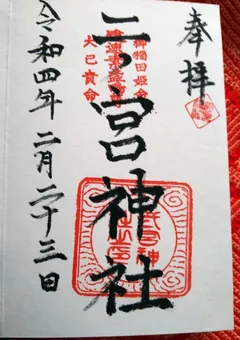 奉拝
二宮神社
御稲田姫命
大己貴命
令和四年二月二十三日